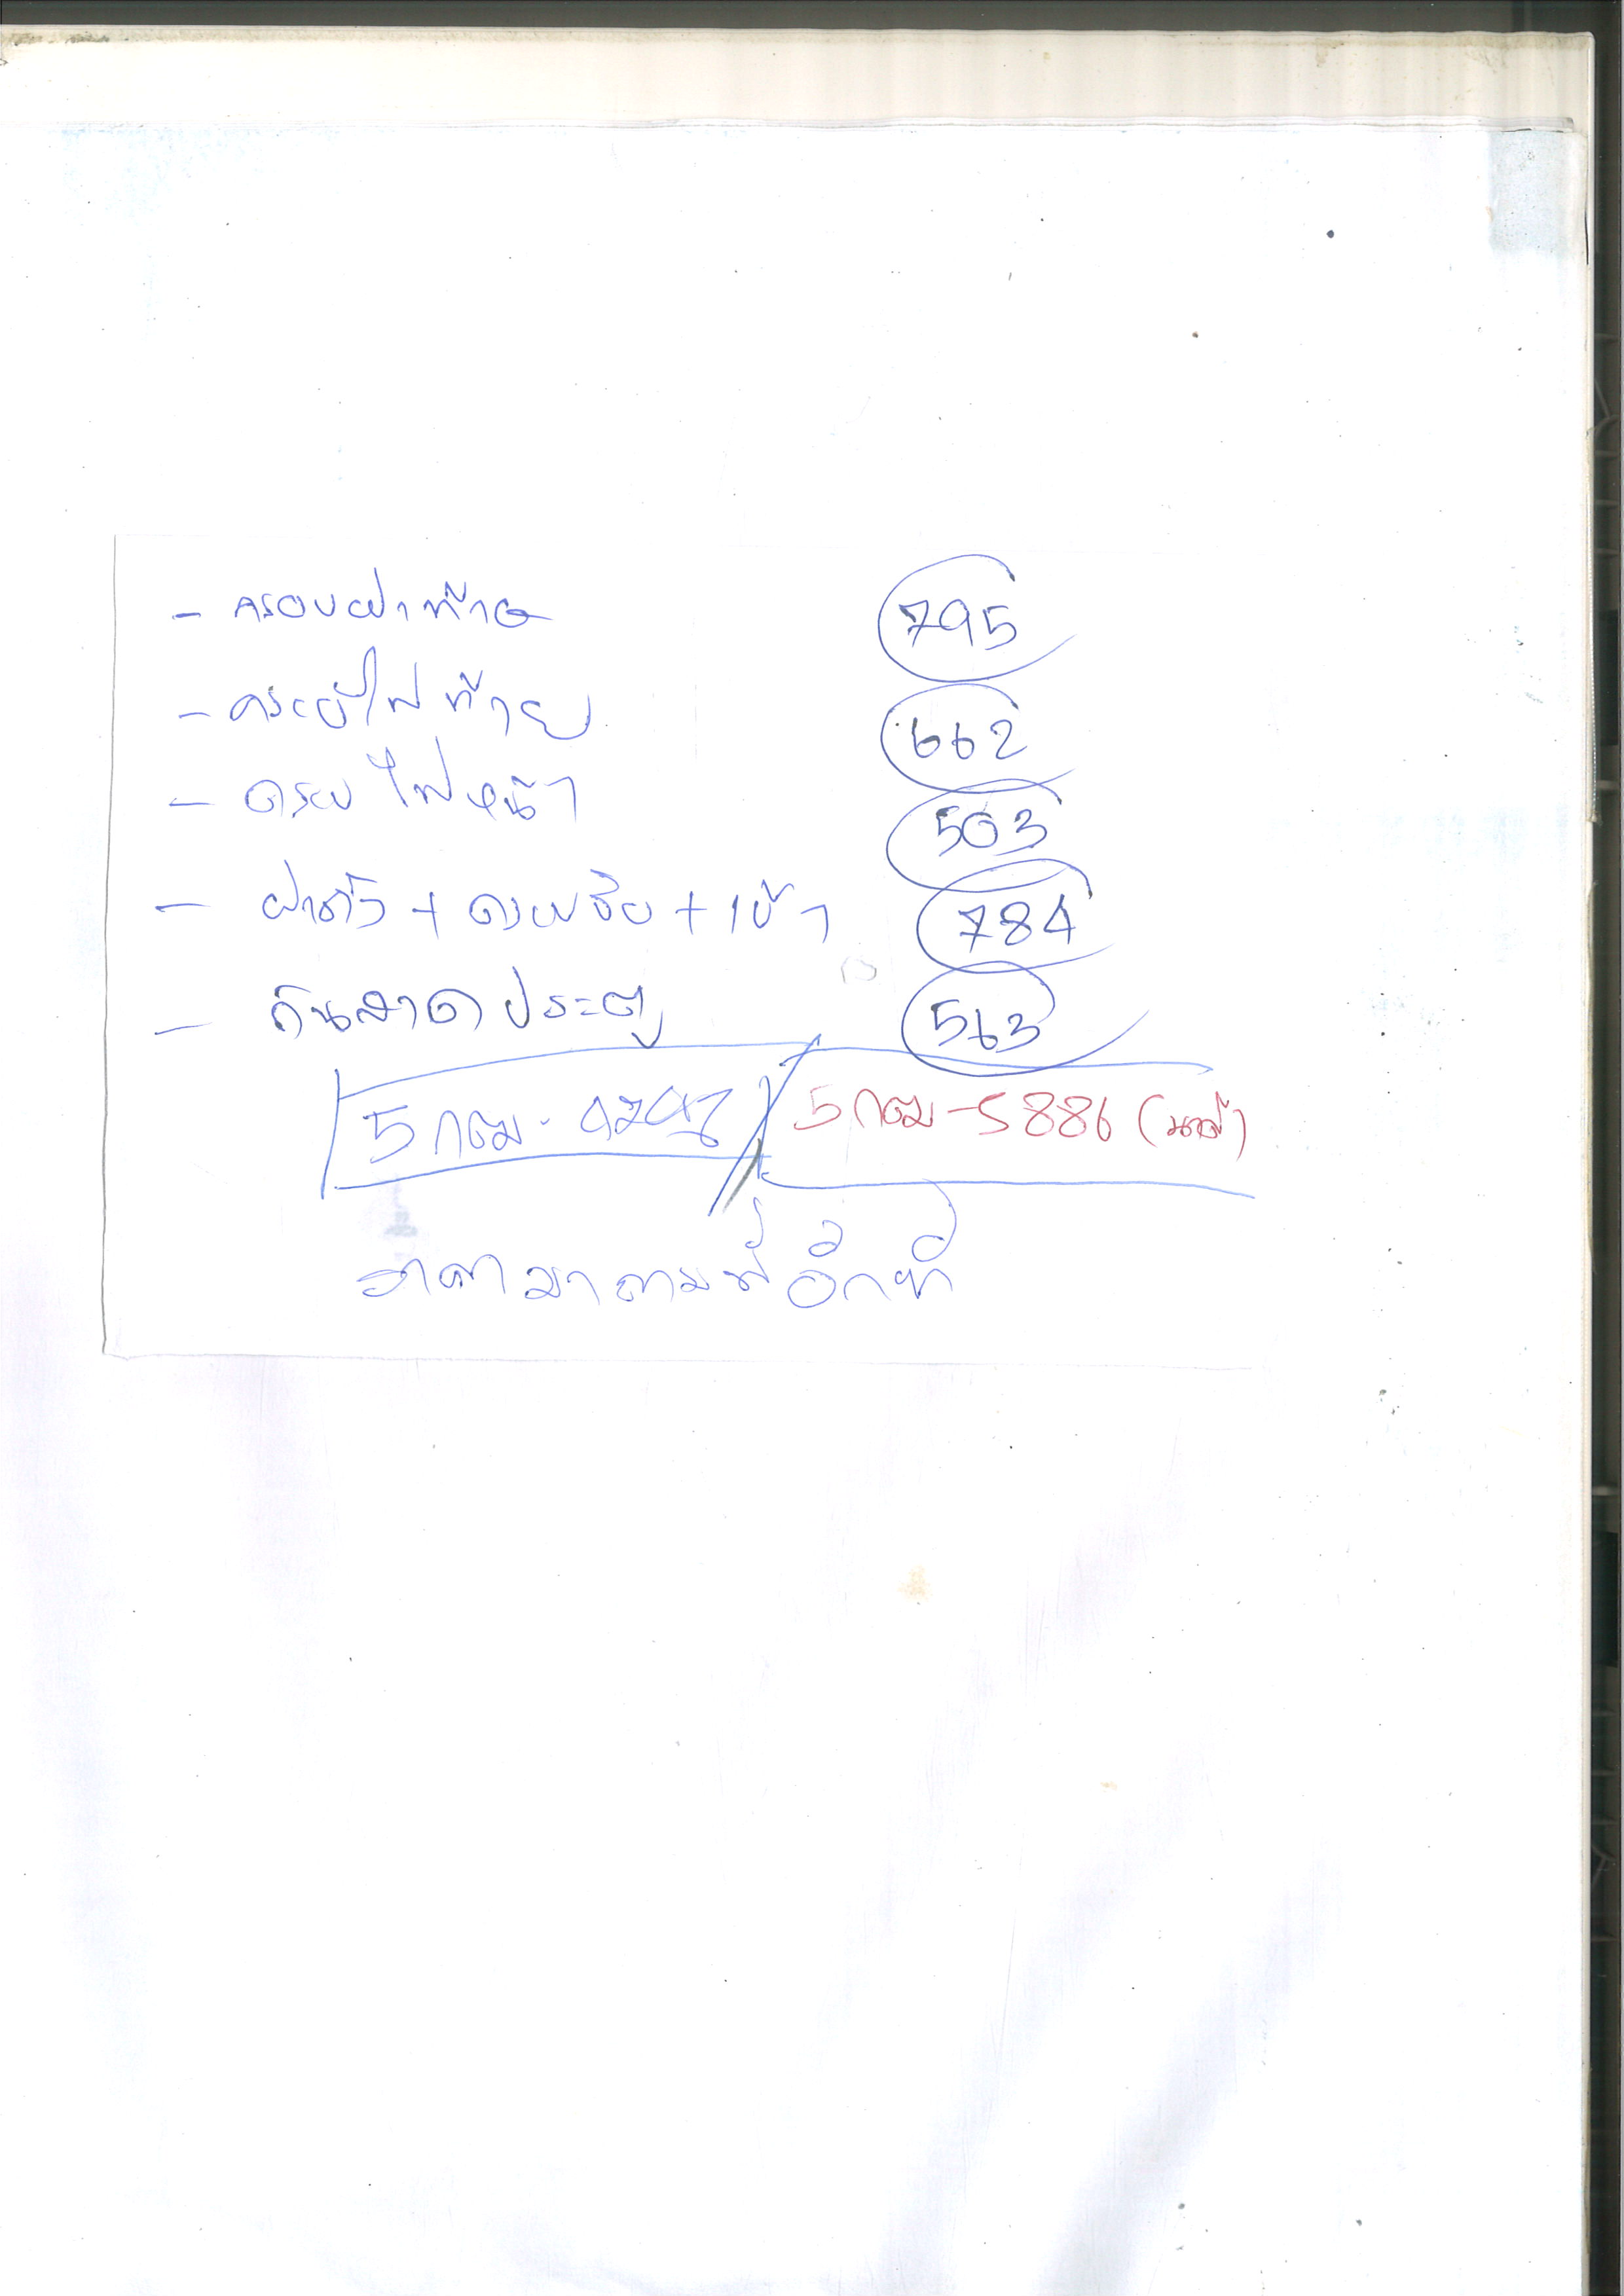 - ครอบฝาท้าย 795
- ครอบไฟท้าย 662
- ครอบไฟหน้า 503
- ฝาถัง + ครอบ + เบ้า 784
- กันสาดประตู 563
5 กฒ - 5886
ราคามาตามที่อีกที